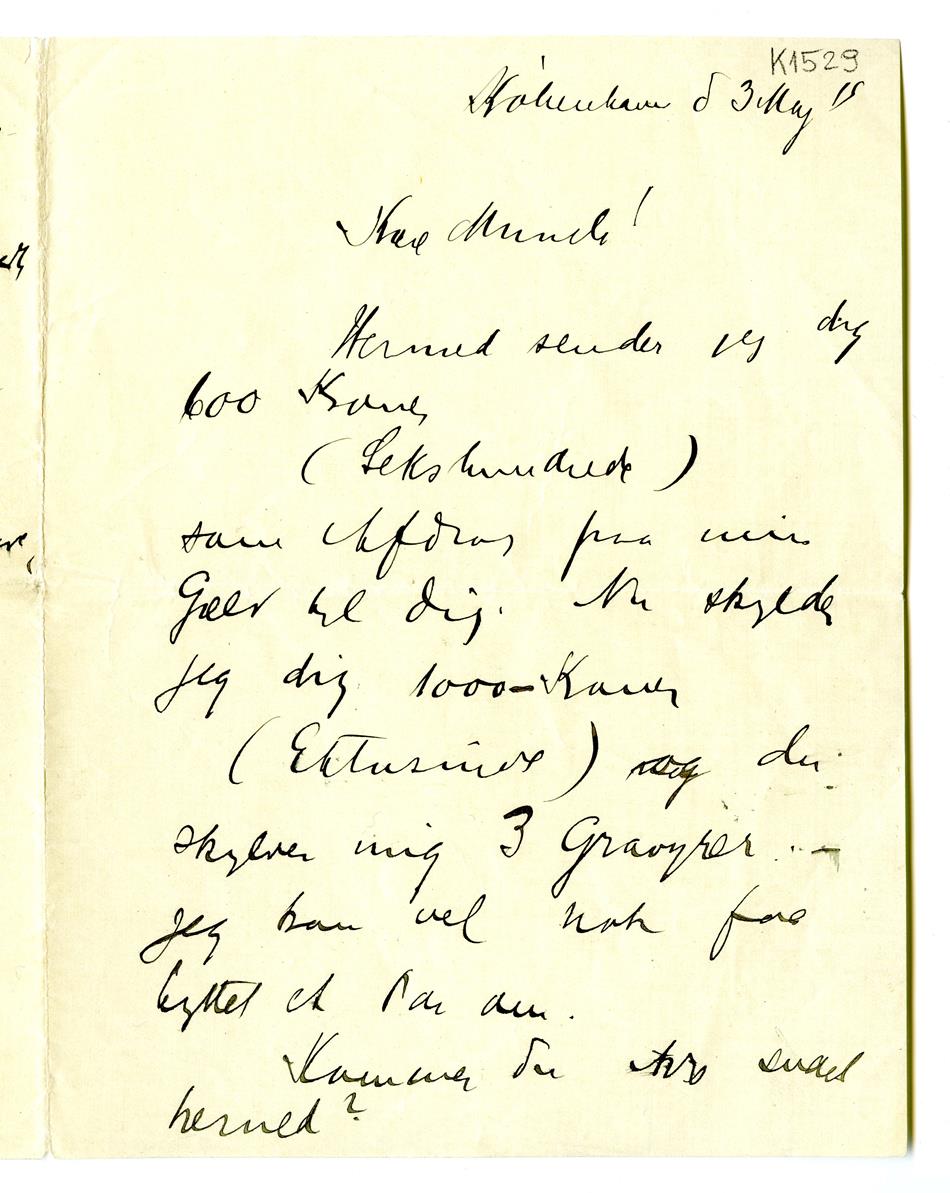 K1529
København d 3 Maj 15
Kære Munch!
Hermed sender jeg dig
600 Kroner
(Sekshundrede)
som Afdrag paa min
Gæld til dig. Nu skylder
jeg dig 1000 - Kroner
(Ettusinde) og du
skylder mig 3 Gravyrer. -
jeg kan vel nok faa
byttet et Par om.
Kommer du ikke snart
herned?